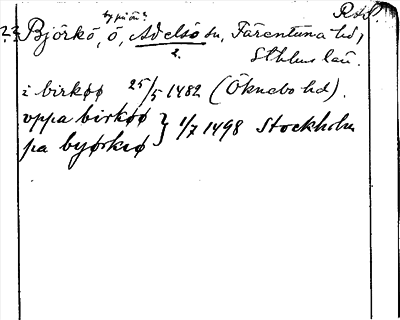 Björkö, ö, Adelsö sn, Färentuna hd,
2.
Sthlms län.
i birkøø 25/5 1482 (Öknebo hd).
vppa birkøø } 1/7 1498 Stockholm
pa byørkiø